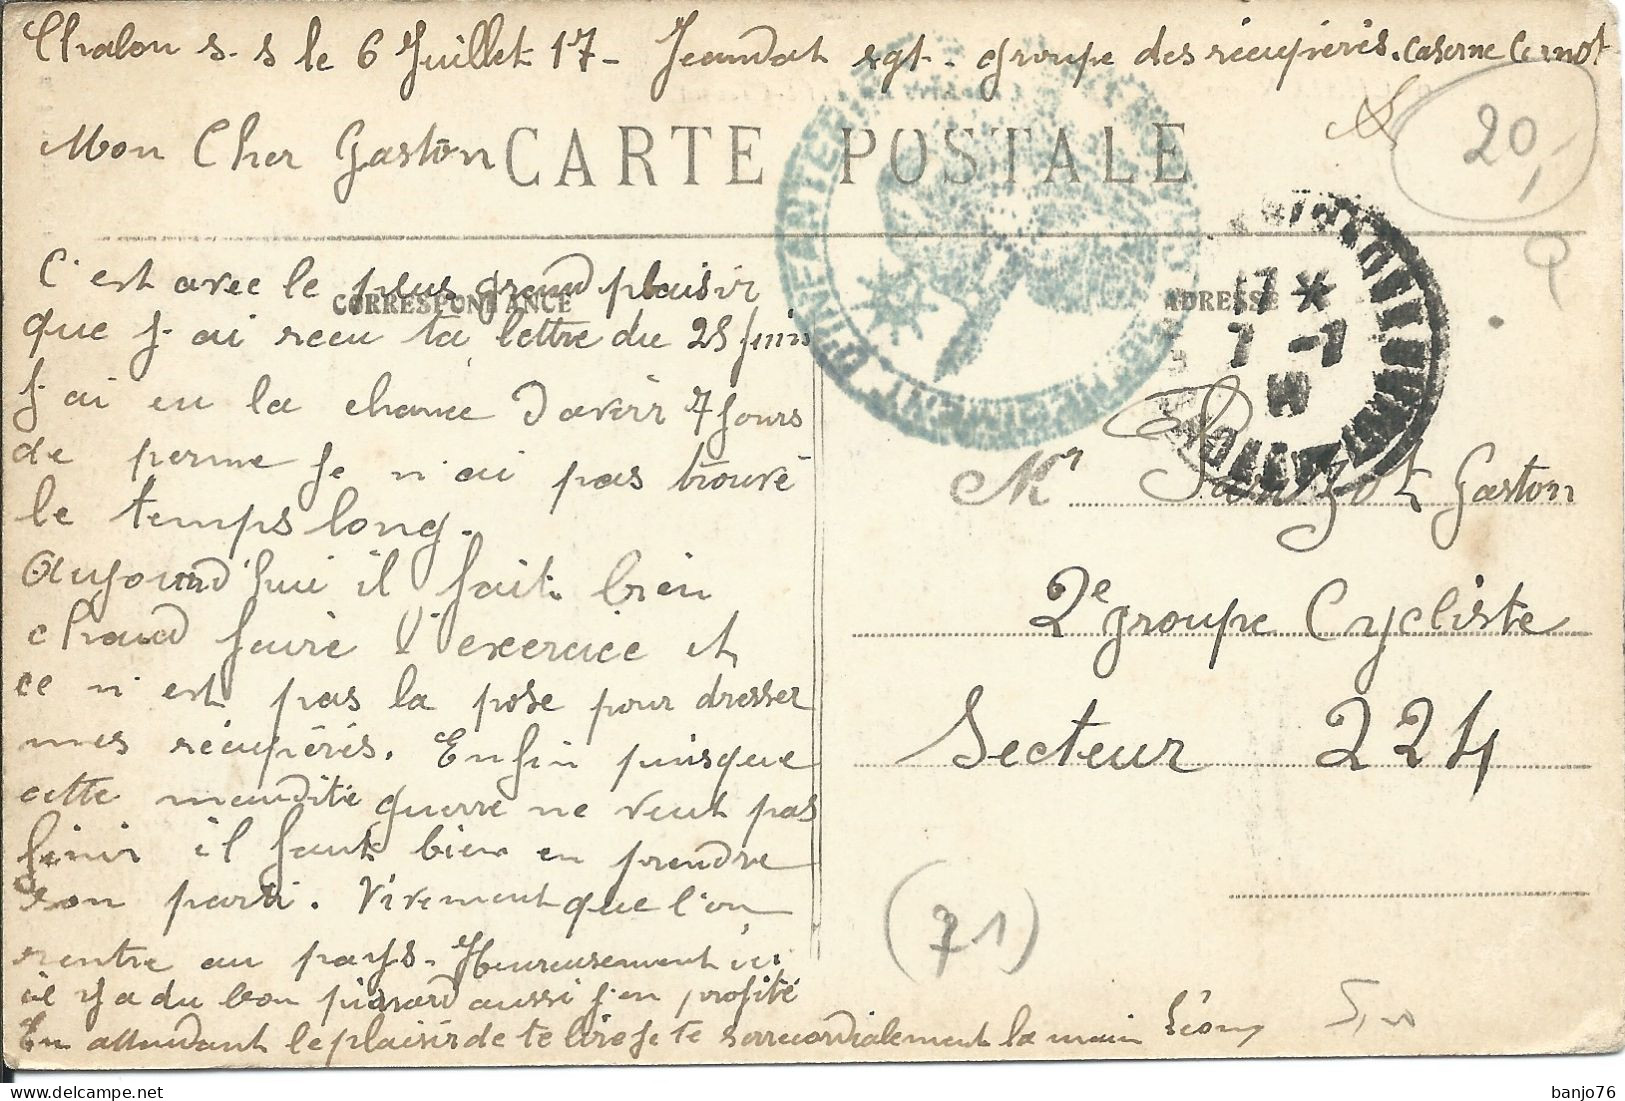 Chalon s. s le 6 Juillet 17 - Jeandot sgt. groupe des récupérés. Caserne Carnot
Mon Cher Gaston
CARTE POSTALE
20,-
CORRESPONDANCE
ADRESSE
C'est avec le plus grand plaisir
que j'ai recu ta lettre du 25 juin
j'ai eu la chance d'avoir 7 jours
de perme je n'ai pas trouvé
le temps long.
Aujourd'hui il fait bien
chaud faire l'exercice et
ce n'est pas la pose pour dresser
mes récupérés. Enfin puisque
cette maudite guerre ne veut pas
finir il faut bien en prendre
son parti. Vivement que l'on
rentre au pays. Heureusement ici
il y a du bon pinard aussi j'en profite
En attendant le plaisir de te lire je te serre cordialement la main Léon
17 *
7 - 7
Mr Gaston
2e groupe Cycliste
Secteur 224
(71)
banjo76